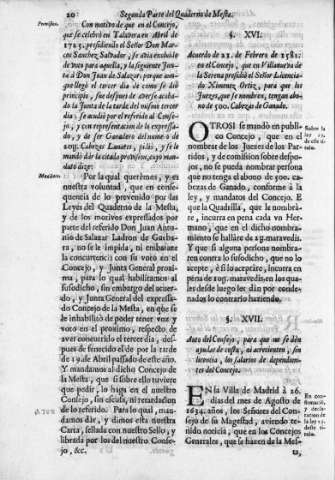 20   Segunda Parte del Quaderno de Mesta.
Con motivo de que en el Concejo,
que se celebrò en Talavera en Abril de
1725. presidiendo el Señor Don Mar-
cos Sanchez Salvador, se avia excluìdo
de voto para aquella, y la siguiente Jun-
ta à Don Juan de Salazar, porque aun-
que llegò el tercer dia de como se diò
principio, fue despues de averse acaba-
do la Junta de la tarde del mismo tercer
dia, se acudiò por el referido al Conse-
jo, y con representacion de lo expressa-
do, y de ser Ganadero del numero de
Cabezas Lanares, pidiò, y se le
mandò dàr la citada provision, cuyo man-
dato dize:
Por la qual queremos, y es
nuestra voluntad, que en conse-
quencia de lo prevenido por las
Leyes del Quaderno de la Mesta,
y de los motivos expressados por
parte del referido Don Juan Anto-
nio de Salazar Ladron de Gueba-
ra, no se le impida, ni embarace
la concurrencia con su voto en el
Concejo, y Junta General proxi-
ma, para lo qual habilitamos al
susodicho, sin embargo del acuer-
do, y Junta General del expressa-
do Concejo de la Mesta, en que se
le inhabilitò de poder tener voz, y
voto en el proximo, respecto de
aver concurrido el tercer dia, des-
pues de fenecido el de por la tarde
de 19. de Abril passado de este año.
Y mandamos al dicho Concejo de
la Mesta, que si sobre ello tuviere
que pedir, lo haga en el nuestro
Consejo, sin escusa, ni retardacion
de lo referido. Para lo qual, man-
damos dàr, y dimos esta nuestra
Carta, sellada con nuestro Sello, y
librada por los del nuestro Conse-
jo, &c.
§. XVI.
Acuerdo de 22. de Febrero de 1582.
en el Concejo, que en Villanueva de
la Serena presidiò el Señor Licencia-
do Ximenez Ortiz, para que los
Juezes, que se nombren, tengan abo-
no de 500. Cabezas de Ganado.
OTROSI se mandò en publi-
co Concejo, que en el
nombrar de los Jueces de los Par-
tidos, y de comission sobre despo-
jos, no se pueda nombrar persona
que no tenga el abono de 500. ca-
bezas de Ganado, conforme à la
ley, y mandatos del Concejo. E
que la Quadrilla, que le nombra-
re, incurra en pena cada un Her-
mano, que en el dicho nombra-
miento se hallàre de 2 maravedis.
Y que si alguna persona nombra-
ren contra lo susodicho, que no lo
acepte, è si lo acceptare, incurra en
pena de maravedis en los qua-
les desde luego les dàn por conde-
nados lo contrario haziendo.
§. XVII.
Auto del Consejo, para que no se dèn
ayudas de costa, ni acrecienten, sin
licencia, los salarios de dependien-
tes del Concejo.
EN la Villa de Madrid à 26.
dias del mes de Agosto de
1634. años, los Señores del Conse-
jo de su Magestad, aviendo te-
nido noticia, que en los Concejos
Generales, que se hacen de la Mes-
ta,